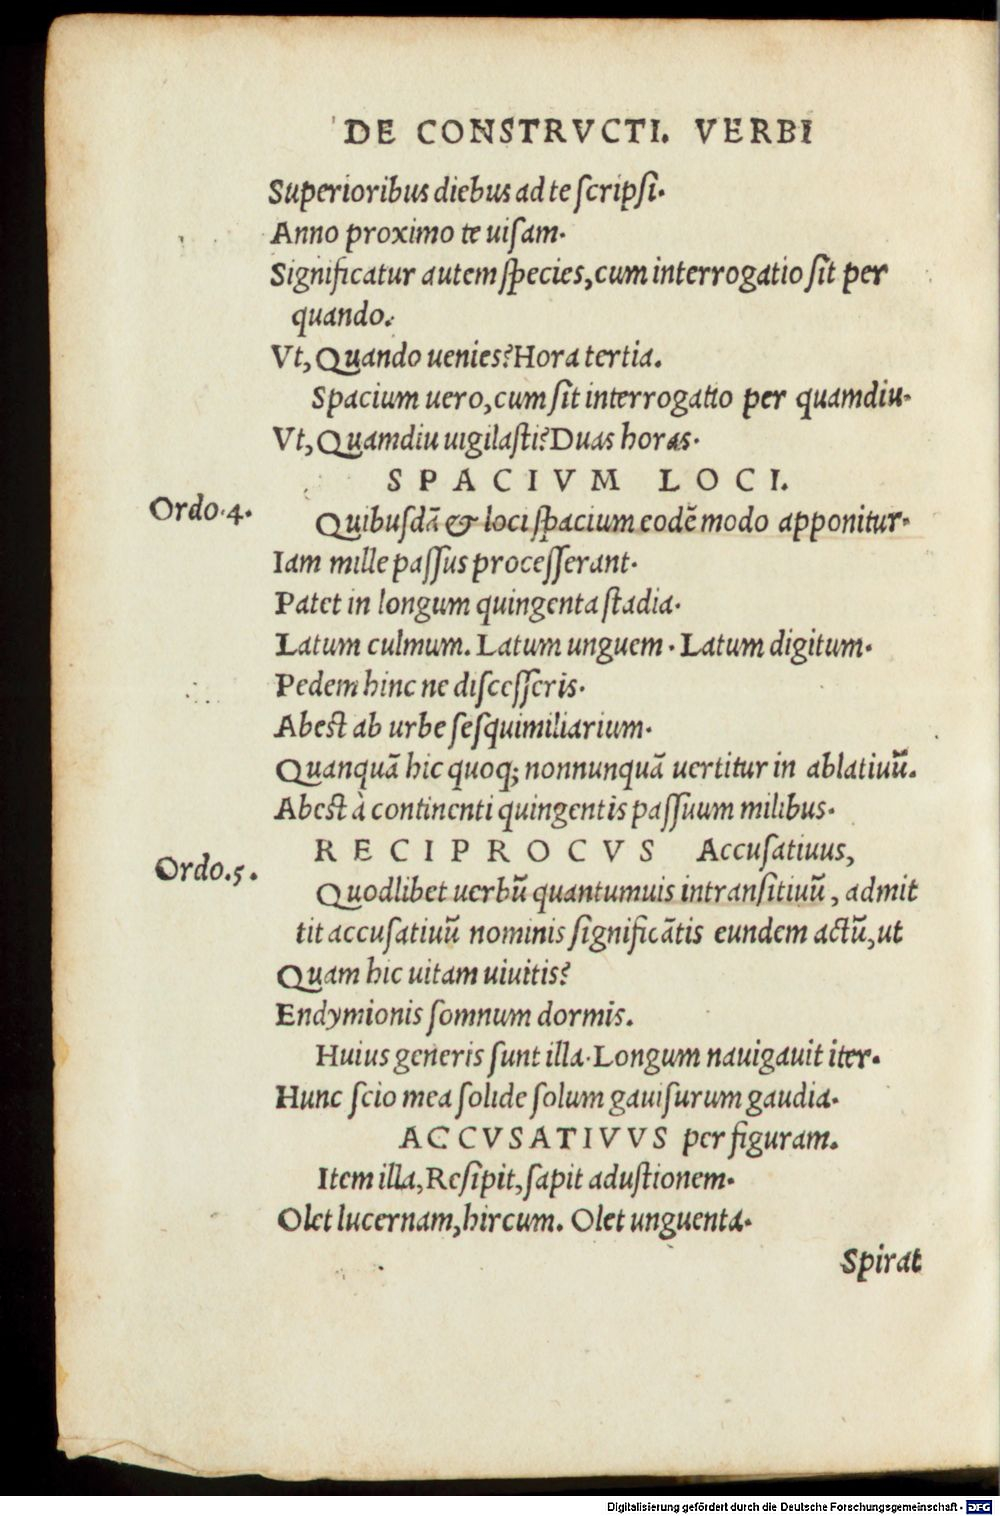 DE CONSTRVCTI. VERBI
Superioribus diebus ad te ſcripſi.
Anno proximo te uiſam.
Significatur autem ſpecies, cum interrogatio ſit per
quando.
Vt, Quando uenies? Hora tertia.
Spacium uero, cum ſit interrogatio per quamdiu.
Vt, Quamdiu uigilaſti? Duas horas.
SPACIVM LOCI.
Ordo.4.
Quibuſdā & loci ſpacium eodē modo apponitur.
Iam mille paſſus proceſſerant.
Patet in longum quingenta ſtadia.
Latum culmum. Latum unguem. Latum digitum.
Pedem hinc ne diſceſſeris.
Abeſt ab urbe ſeſquimiliarium.
Quanquā hic quoq; nonnunquā uertitur in ablatiuū.
Abeſt à continenti quingentis paſſuum milibus.
RECIPROCVS Accuſatiuus,
Ordo.5.
Quodlibet uerbū quantumuis intranſitiuū, admit
tit accuſatiuū nominis ſignificātis eundem actū, ut
Quam hic uitam uiuitis?
Endymionis ſomnum dormis.
Huius generis ſunt illa. Longum nauigauit iter.
Hunc ſcio mea ſolide ſolum gauiſurum gaudia.
ACCVSATIVVS per figuram.
Item illa, Reſipit, ſapit aduſtionem.
Olet lucernam, hircum. Olet unguenta.
Spirat
Digitalisierung gefördert durch die Deutsche Forschungsgemeinschaft - DFG